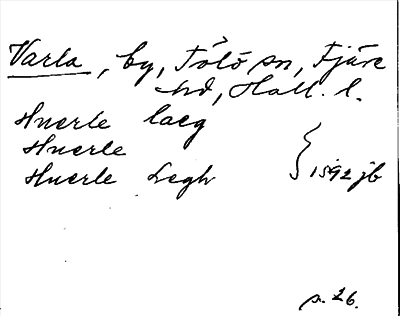 Varla, by, Tölö sn, Fjäre
hd, Hall. l.
Huerle laeg
Huerle
Huerle Legh } 1592 jb
s. 26.